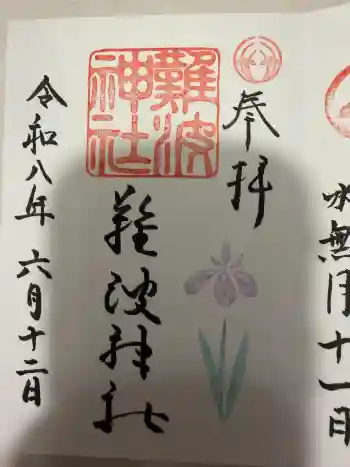 水無月十一日
奉拝
難波神社
難波神社
令和八年六月十二日